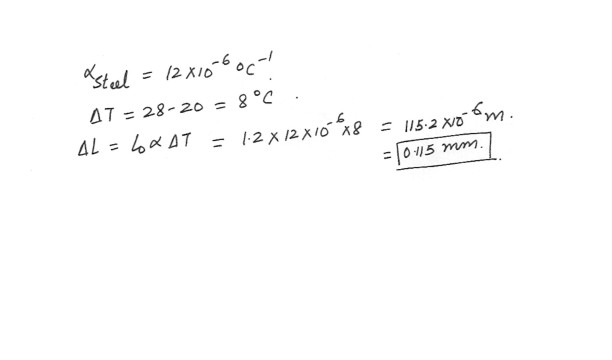 α Steel = 12 × 10⁻⁶ °C⁻¹.
ΔT = 28 - 20 = 8 °C .
ΔL = L₀ α ΔT = 1.2 × 12 × 10⁻⁶ × 8 = 115.2 × 10⁻⁶ m .
= 0.115 mm. .